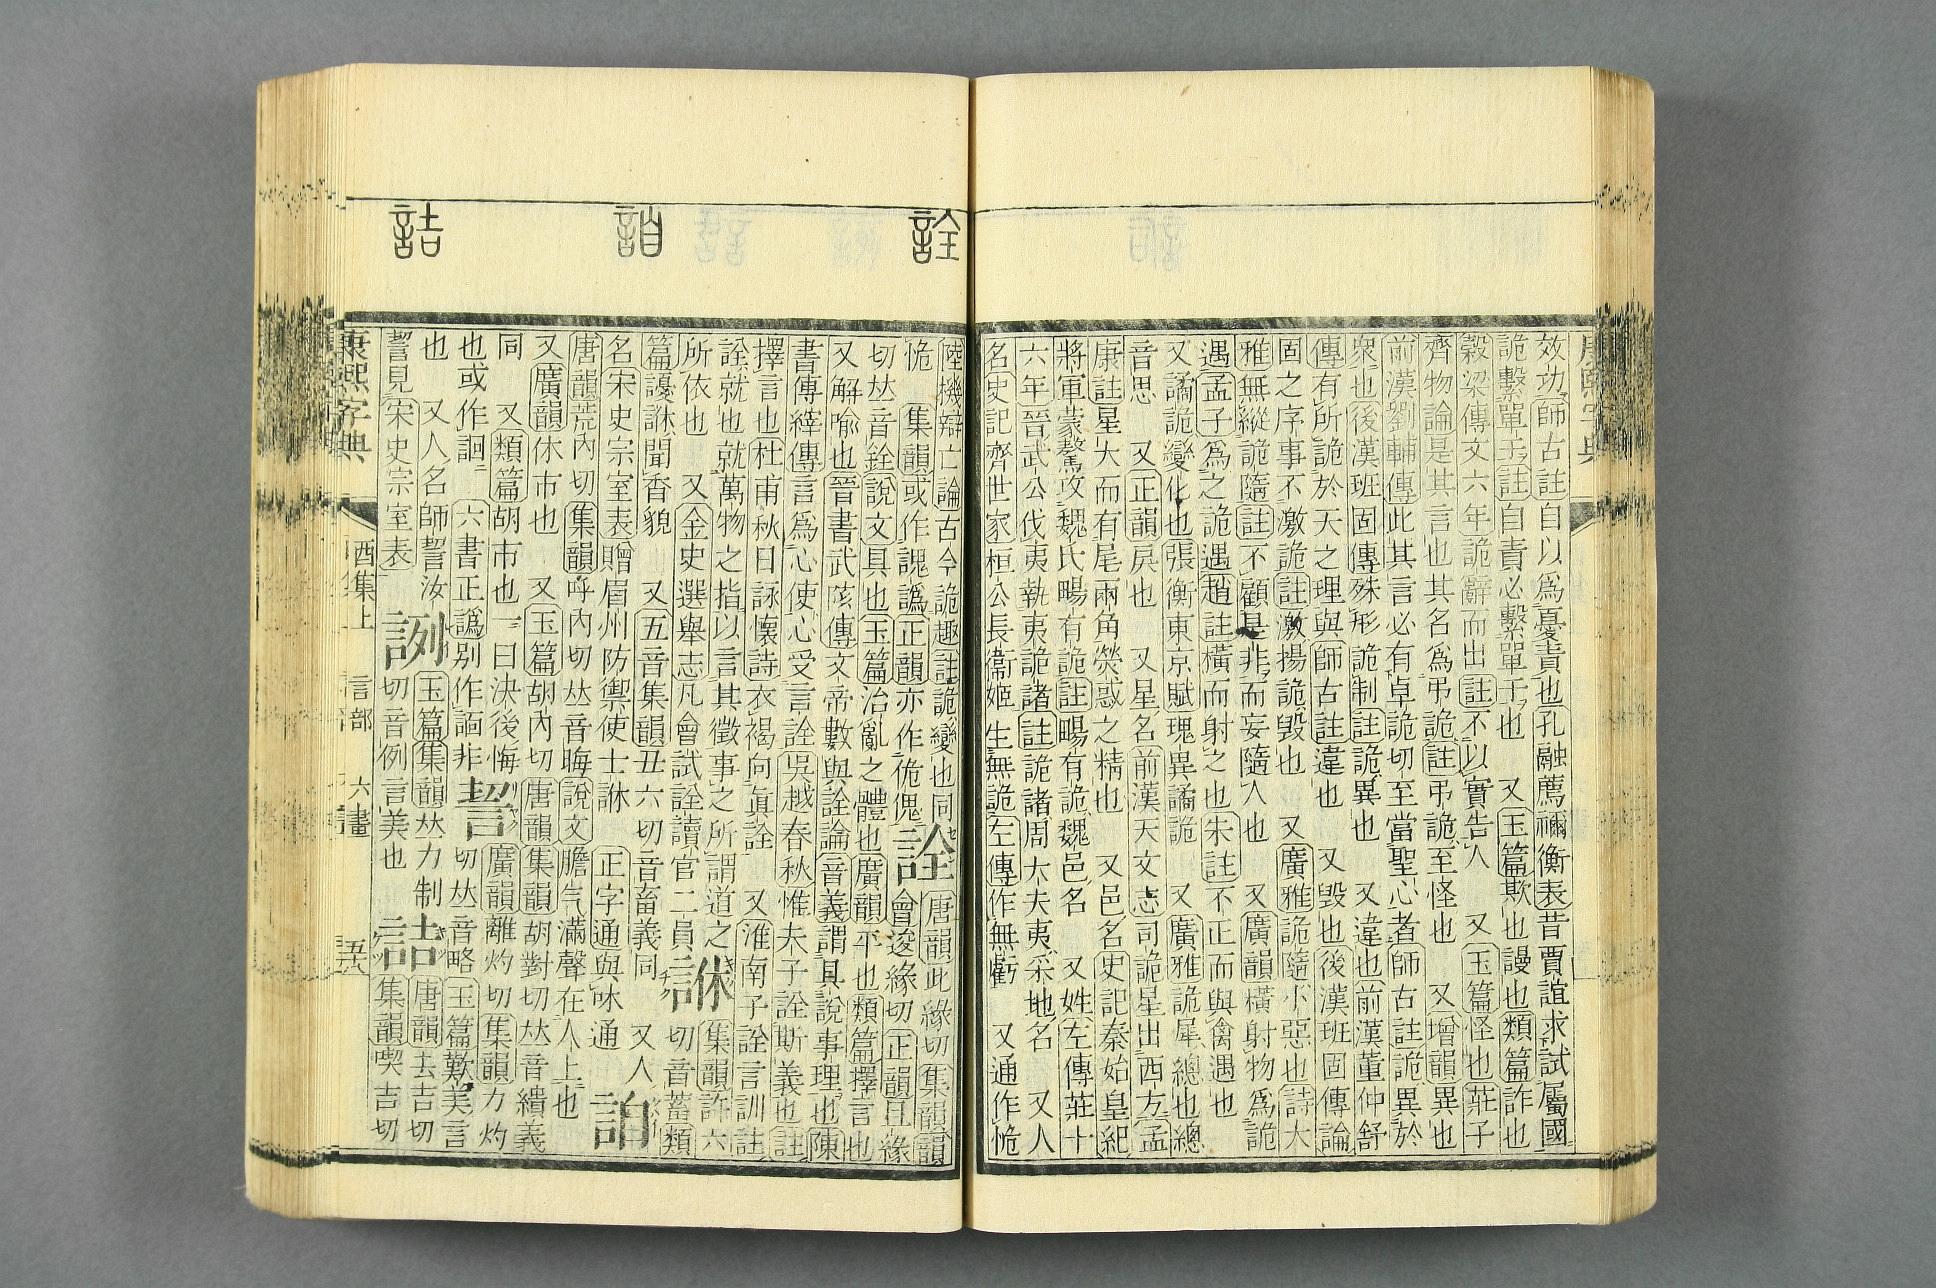 效功師古註自以爲憂責也孔融薦禰衡表昔賈誼求試屬國
詭繫單于註自責必繫單于也　又玉篇欺也謾也類篇詐也
穀梁傳文六年詭辭而出註不以實告人　又玉篇怪也莊子
齊物論是其言也其名爲弔詭註弔詭至怪也　又增韻異也
前漢劉輔傳此其言必有卓詭切至當聖心者師古註詭異於
衆也後漢班固傳殊形詭制註詭異也　又違也前漢董仲舒
傳有所詭於天之理與師古註違也　又毀也後漢班固傳論
固之序事不激詭註激揚詭毀也　又廣雅詭隨小惡也詩大
雅無縱詭隨註不顧是非而妄隨人也　又廣韻橫射物爲詭
遇孟子爲之詭遇趙註橫而射之也朱註不正而與禽遇也
又譎詭變化也張衡東京賦瑰異譎詭　又廣雅詭犀總也總
音思　又正韻戾也　又星名前漢天文志司詭星出西方孟
康註星大而有尾兩角熒惑之精也　又邑名史記秦始皇紀
將軍蒙驁攻魏氏暘有詭註暘有詭魏邑名　又姓左傳莊十
六年晉武公伐夷執夷詭諸註詭諸周大夫夷采地名　又人
名史記齊世家桓公長衞姬生無詭左傳作無虧　又通作恑
詮
訊
詰
陸機辯亡論古今詭趣註詭變也同詮唐韻此緣切集韻韻
恑　集韻或作諣譌正韻亦作佹傀會逡緣切正韻且緣
切𠀤音銓說文具也玉篇治亂之體也廣韻平也類篇擇言也
又解喩也晉書武陔傳文帝數與詮論音義謂具說事理也陳
書傳縡傳言爲心使心受言詮吳越春秋惟夫子詮斯義也註
擇言也杜甫秋日詠懷詩衣褐向眞詮　又淮南子詮言訓註
詮就也就萬物之指以言其徵事之所謂道之訹集韻許六
所依也　又金史選舉志凡會試詮讀官二員切音蓄類
篇謢訹聞香貌　又五音集韻丑六切音畜義同　又人
名宋史宗室表贈眉州防禦使士訹　正字通與怵通
唐韻荒內切集韻呼內切𠀤音晦說文膽气滿聲在人上也
又廣韻休市也　又玉篇胡內切唐韻集韻胡對切𠀤音繢義
同　又類篇胡市也一曰決後悔　廣韻離灼切集韻力灼
也或作詯　六書正譌別作詯非　切𠀤音略玉篇歎美言
也　又人名師詻汝　玉篇集韻𠀤力制　唐韻去吉切
詻見宋史宗室表　詾　切音例言美也　詰　集韻喫吉切
康熙字典　酉集上　言部　六畫